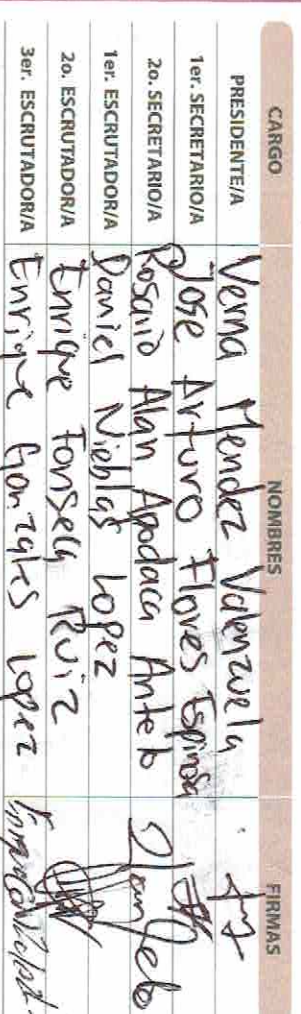 CARGO NOMBRES FIRMAS
PRESIDENTE/A Verna Mendez Valenzuela
1er. SECRETARIO/A Jose Arturo Flores Espinosa
2o. SECRETARIO/A Rosario Alan Apodaca Antelo
1er. ESCRUTADOR/A Daniel Nieblas Lopez
2o. ESCRUTADOR/A Enrique Fonseca Ruiz
3er. ESCRUTADOR/A Enrique Gonzales Lopez